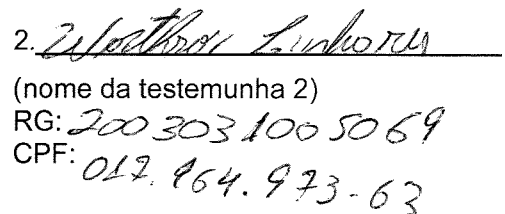 2. Linhares
(nome da testemunha 2)
RG: 2003031005069
CPF: 017.964.973-63